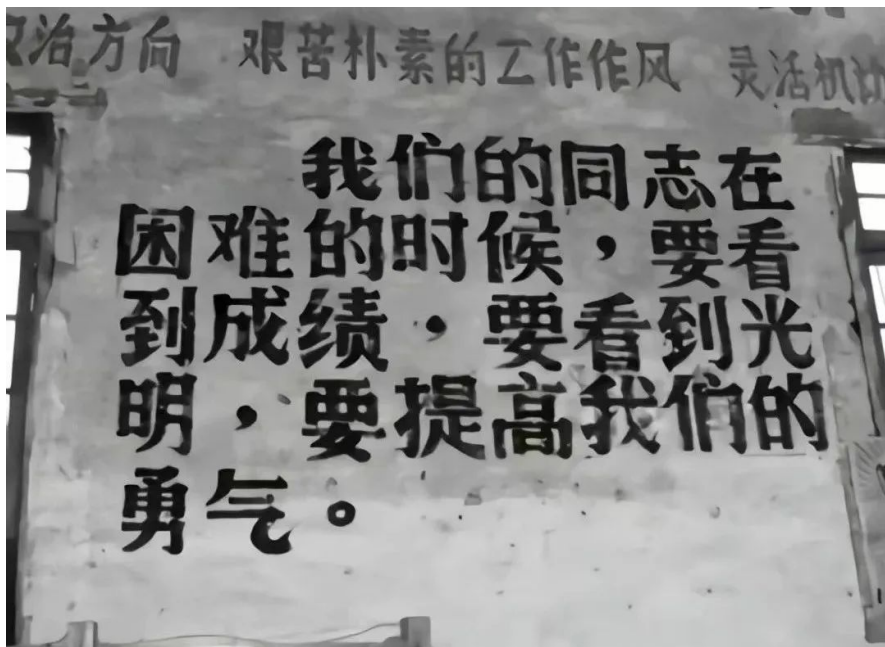 政治方向 艰苦朴素的工作作风 灵活机动
我们的同志在
困难的时候，要看
到成绩，要看到光
明，要提高我们的
勇气。